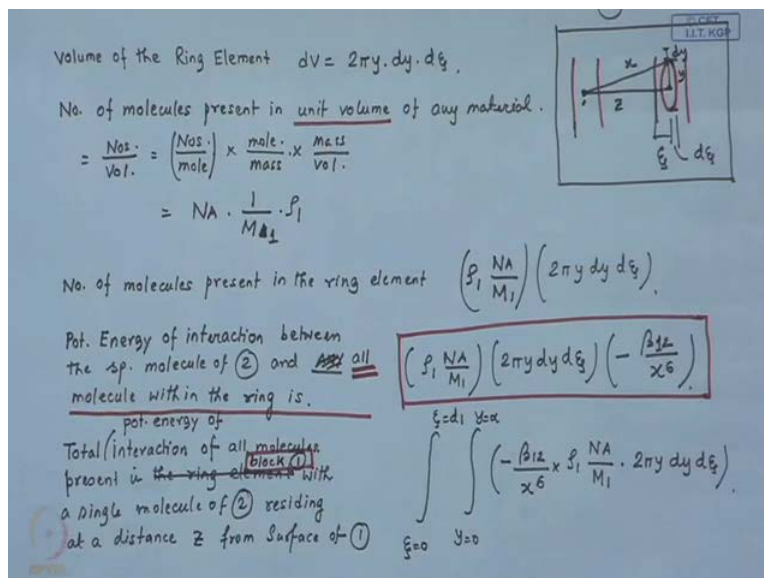 © CET
I.I.T. KGP
Volume of the Ring Element dV = 2πy. dy. dξ.
No. of molecules present in unit volume of any material.
= Nos./Vol. = (Nos./mole) × mole./mass × mass/vol.
= NA . 1/M1 . ρ1
No. of molecules present in the ring element (ρ1 NA/M1) (2πy dy dξ).
Pot. Energy of interaction between
the sp. molecule of ② and all
molecule with in the ring is.
(ρ1 NA/M1) (2πy dy dξ) (- β12/x^6)
pot. energy of
Total interaction of all molecules
present in the ring element block ① with
a single molecule of ② residing
at a distance Z from Surface of ①
ξ=d1 y=α
∫ ∫ (- β12/x^6 × ρ1 NA/M1 . 2πy dy dξ).
ξ=0 y=0
x
dy
y
z
ξ
dξ